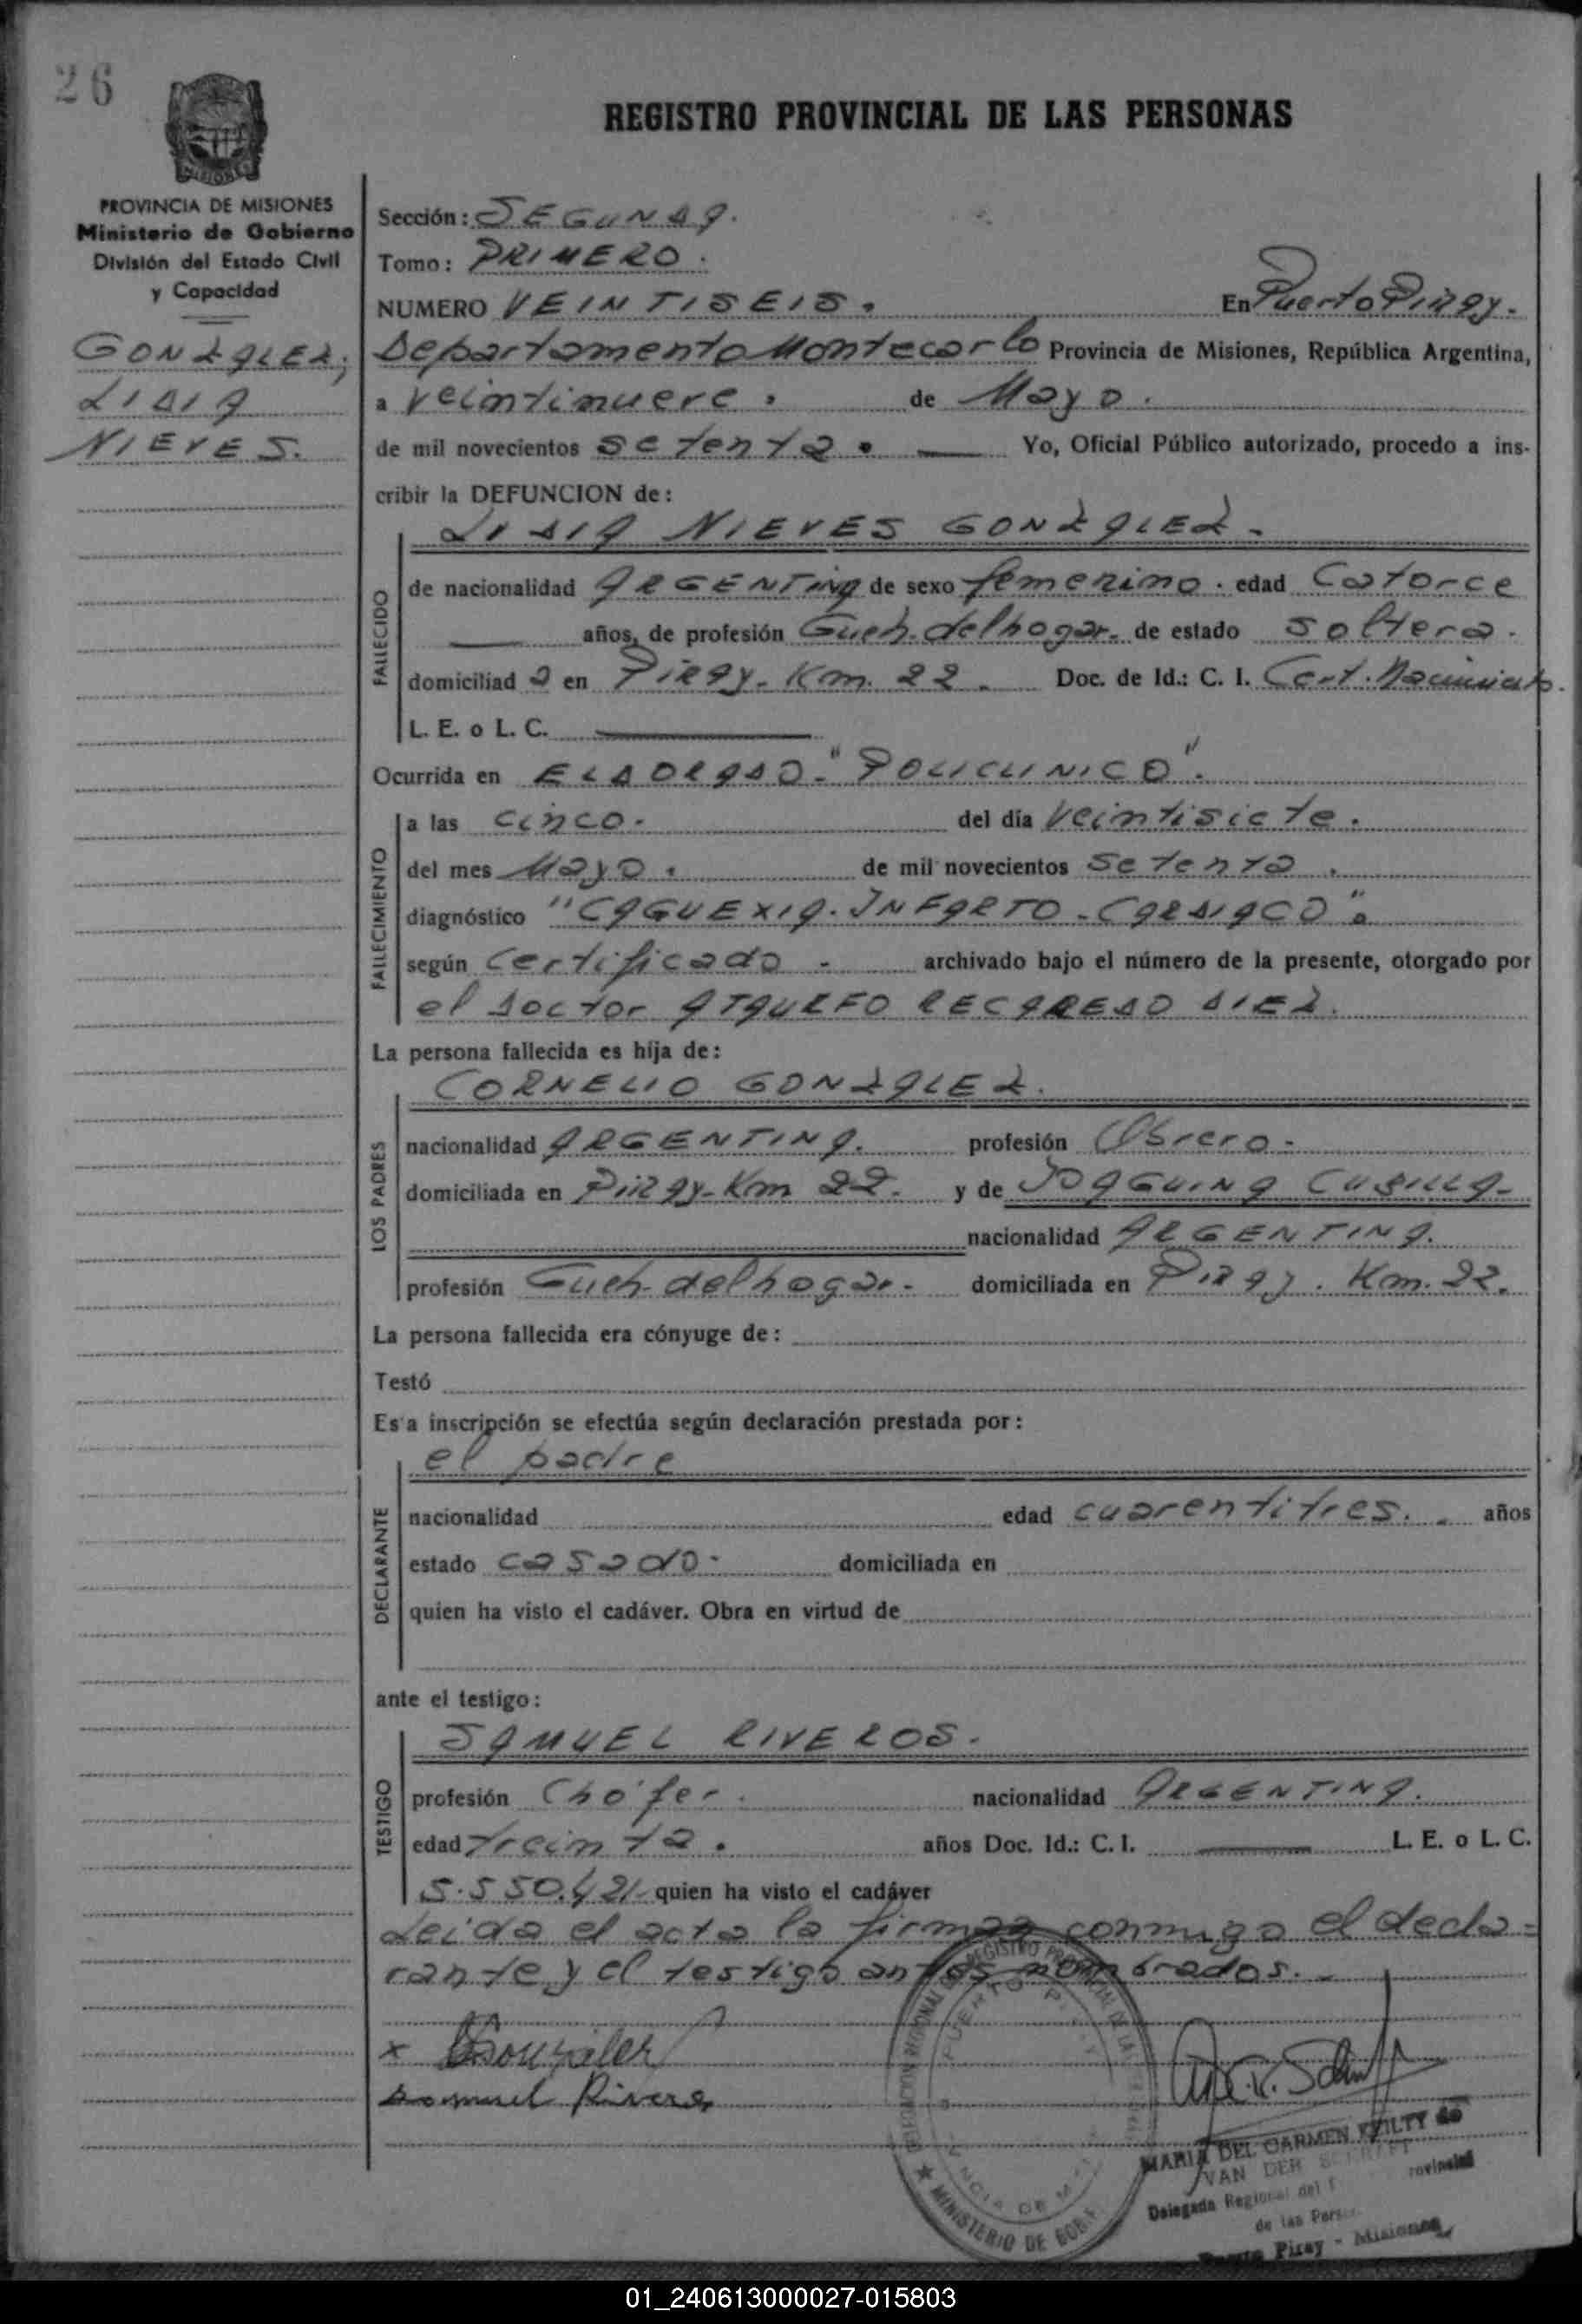 26
REGISTRO PROVINCIAL DE LAS PERSONAS
MISIONES
PROVINCIA DE MISIONES
Ministerio de Gobierno
División del Estado Civil
y Capacidad
GONZALEZ,
LIDIA
NIEVES.
Sección: SEGUNDA.
Tomo: PRIMERO.
NUMERO VEINTISEIS. En Puerto Piray.
Departamento Montecarlo Provincia de Misiones, República Argentina,
a veintinueve. de Mayo.
de mil novecientos setenta. Yo, Oficial Público autorizado, procedo a ins-
cribir la DEFUNCION de:
LIDIA NIEVES GONZALEZ.
FALLECIDO
de nacionalidad ARGENTINA de sexo femenino. edad Catorce
años, de profesión Queh. del hogar. de estado soltera.
domiciliad a en PIRAY. Km. 22. Doc. de Id.: C. I. Cert. Nacimiento.
L. E. o L. C.
Ocurrida en ELDORADO. "POLICLINICO".
FALLECIMIENTO
a las cinco. del día veintisiete.
del mes Mayo. de mil novecientos setenta.
diagnóstico "CAGUEXIA. INFARTO. CARDIACO".
según certificado. archivado bajo el número de la presente, otorgado por
el Doctor ATAULFO RECAREDO DIEZ.
La persona fallecida es hija de:
CORNELIO GONZALEZ.
LOS PADRES
nacionalidad ARGENTINA. profesión Obrero.
domiciliada en Piray. Km 22. y de JOAQUINA CUBILLA.
nacionalidad ARGENTINA.
profesión Queh. del hogar. domiciliada en Piray. Km. 22.
La persona fallecida era cónyuge de:
Testó
Es a inscripción se efectúa según declaración prestada por:
el padre
DECLARANTE
nacionalidad edad cuarentitres. años
estado casado. domiciliada en
quien ha visto el cadáver. Obra en virtud de
ante el testigo:
SAMUEL RIVEROS.
TESTIGO
profesión Chófer. nacionalidad ARGENTINA.
edad treinta. años Doc. Id.: C. I. L. E. o L. C.
5.550.421 quien ha visto el cadáver
Leida el acta la firman conmigo el decla-
rante y el testigo antes nombrados.
x Gonzalez
Samuel Riveros
MARIA DEL CARMEN KEILTY de
VAN DER
Delegada Regional del rovincial
de las Pers
Piray - Misiones
MINISTERIO DE GOB
01_240613000027-015803